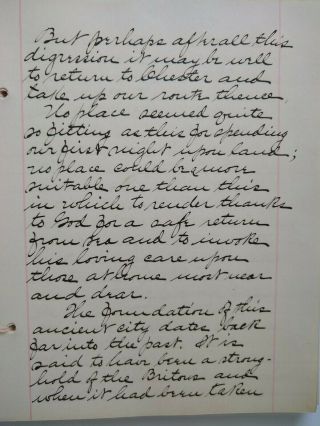 But perhaps after all this
digression it may be well
to return to Chester and
take up our route thence.
No place seemed quite
so fitting as this for spending
our first night upon land;
no place could be more
suitable one than this
in which to render thanks
to God for a safe return
from sea and to invoke
his loving care upon
those at home most near
and dear.
The foundation of this
ancient city dates back
far into the past. It is
said to have been a strong-
hold of the Britons and
when it had been taken